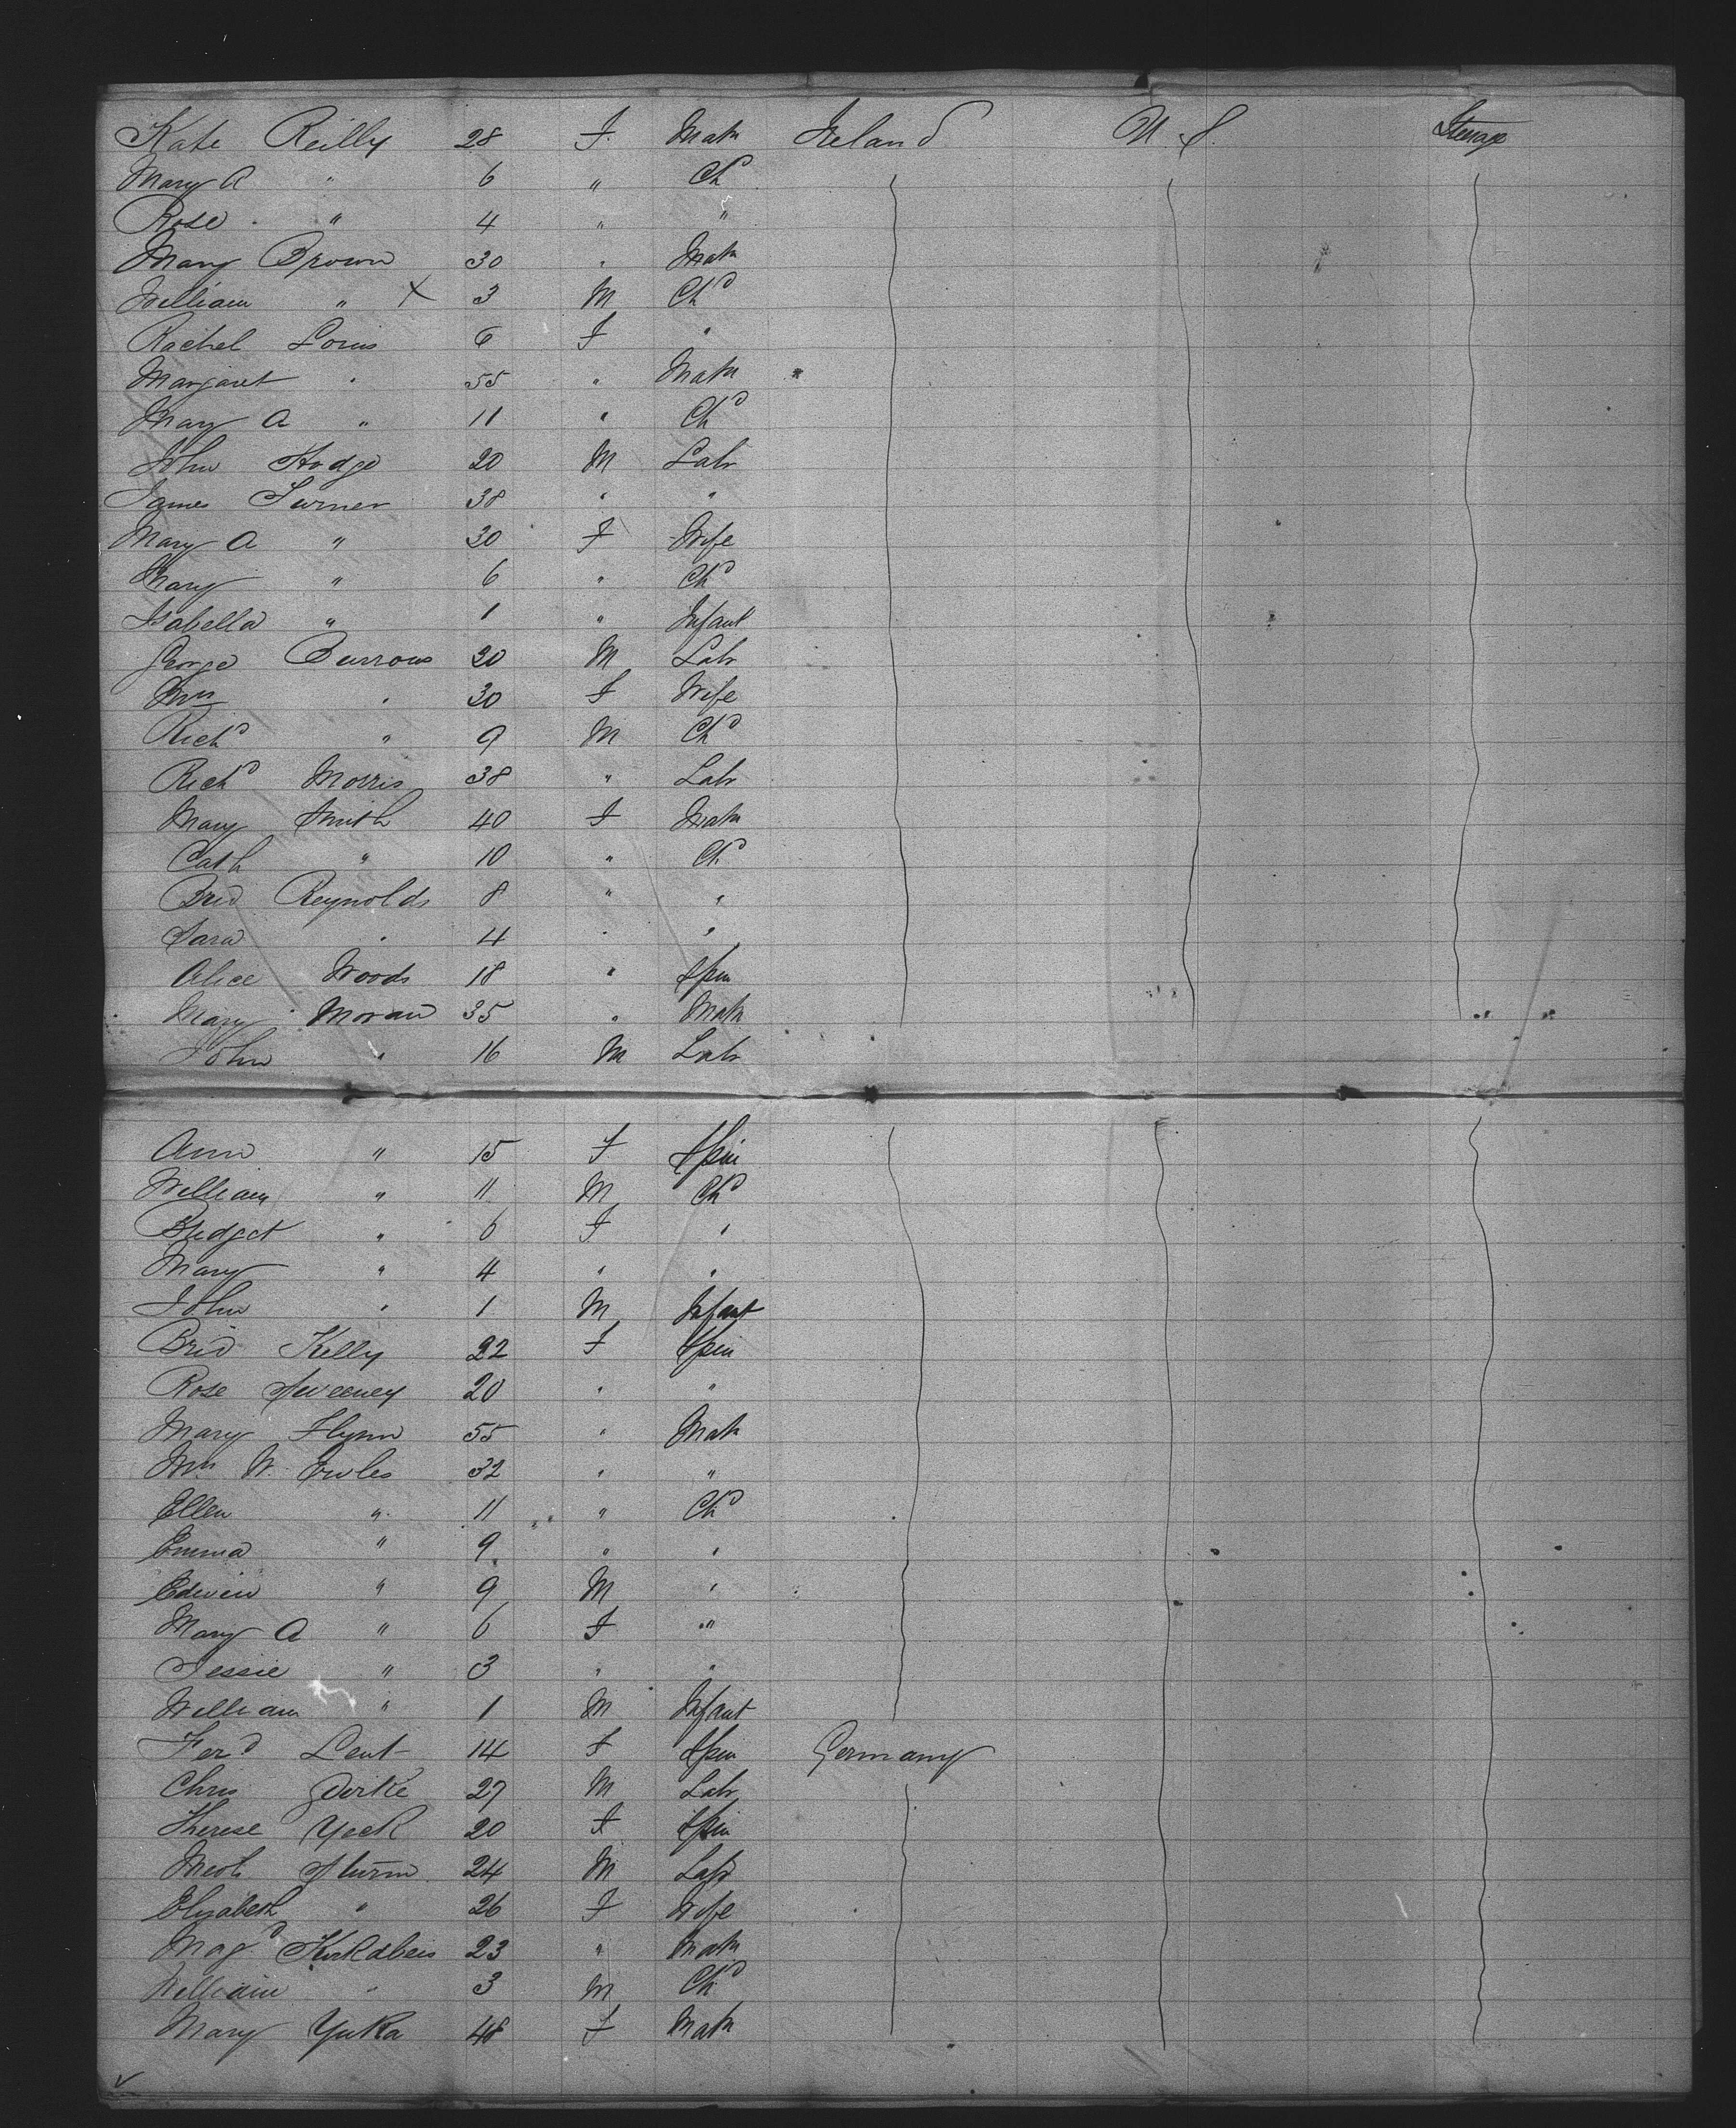 Kate Reilly 28 F. Matn Ireland U.S. Steerage
Mary A " 6 " Chd
Rose " 4 " "
Mary Brown 30 " Matn
William " X 3 M Chd
Rachel 6 F "
Margaret " 55 " Matn
Mary A " 11 " Chd
John Hodge 20 M Labr
James Turner 38 " "
Mary A " 30 F Wife
Mary " 6 " Chd
Isabella " 1 " Infant
George Burrows 30 M Labr
Mrs " 30 F Wife
Richd " 9 M Chd
Richd Morris 38 " Labr
Mary Smith 40 F Matn
Cath " 10 " Ch
Brid Reynolds 8 " "
Sara " 4 " "
Alice Woods 18 " Spin
Mary Moran 35 " Matn
John " 16 M Labr
Ann " 15 F Spin
William " 11 M Chd
Bridget " 6 F "
Mary " 4 " "
John " 1 M Infant
Brid Kelly 22 F Spin
Rose Sweeney 20 " "
Mary Flynn 55 " Matn
Mrs W. 32 " "
Ellen " 11 " Chd
Emma " 9 " "
Edwin " 9 M "
Mary A " 6 F "
Jessie " 3 " "
William " 1 M Infant
Ferd Lent 14 F Spin Germany
Chris 27 M Labr
Therese Yeck 20 F Spin
Sturm 24 M Labr
Elizabeth " 26 F Wife
Magd 23 " Matn
William " 3 M Chd
Mary Yuka 48 F Matn